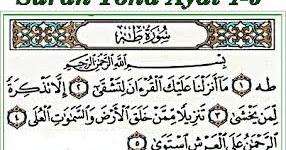 Surah Toha Ayat 1-5
سُورَةُ طه
بِسْمِ اللَّهِ الرَّحْمَٰنِ الرَّحِيمِ
طه ١ مَا أَنزَلْنَا عَلَيْكَ الْقُرْءَانَ لِتَشْقَىٰ ٢ إِلَّا تَذْكِرَةً
لِّمَن يَخْشَىٰ ٣ تَنزِيلًا مِّمَّنْ خَلَقَ الْأَرْضَ وَالسَّمَٰوَٰتِ الْعُلَى ٤
الرَّحْمَٰنُ عَلَى الْعَرْشِ اسْتَوَىٰ ٥